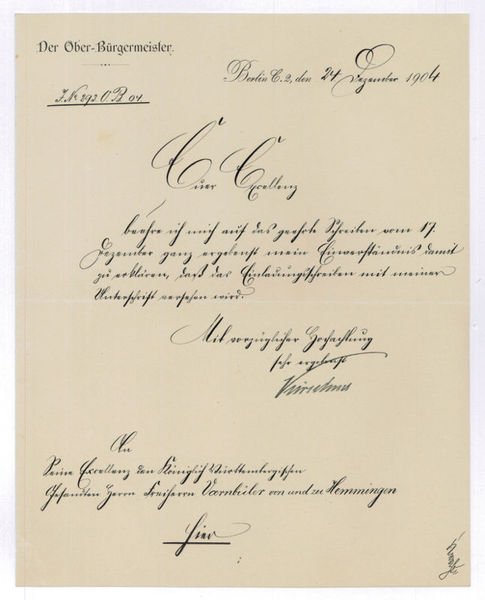 Der Ober-Bürgermeister.
Berlin C. 2, den 24 Dezember 1904
J. No 292 O. B 04
Euer Excellenz
beehre ich mich auf das geehrte Schreiben vom 17.
Dezember ganz ergebenst mein Einverständnis damit
zu erklären, daß das Einladungsschreiben mit meiner
Unterschrift versehen wird.
Mit vorzüglicher Hochachtung
sehr ergebenst
Kirschner
An
Seine Excellenz den Königlich Württembergischen
Gesandten Herrn Freiherrn Varnbüler von und zu Hemmingen
Hier